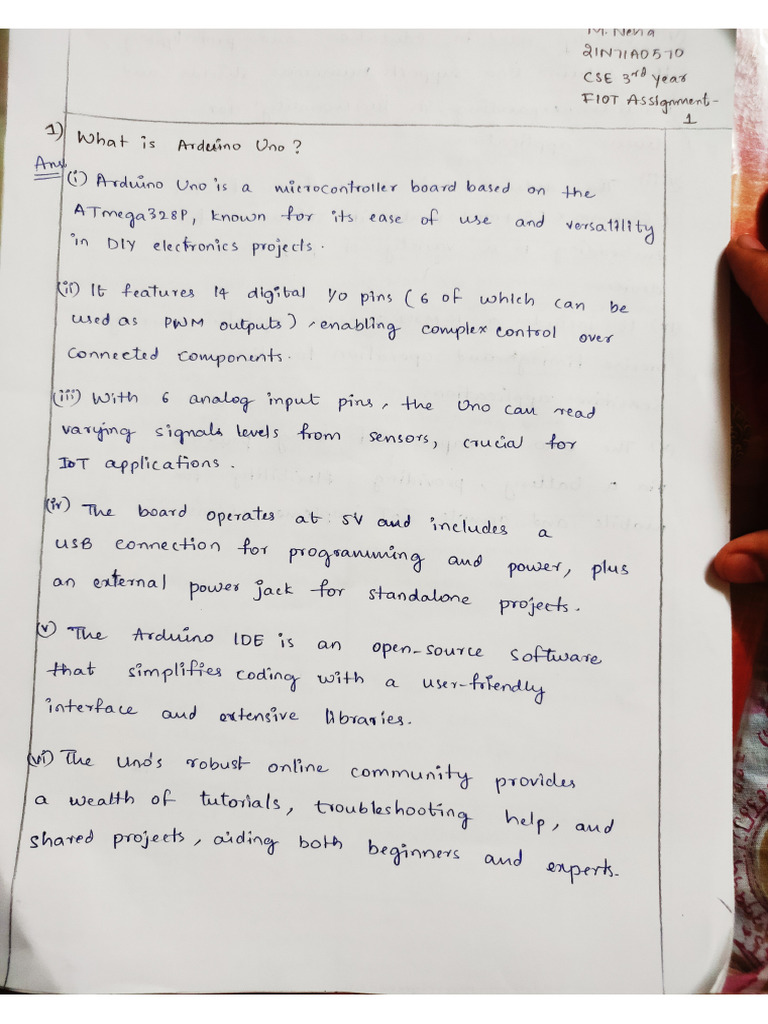 M. Neha
21N71A0570
CSE 3rd Year
FIOT Assignment-
1
1) What is Arduino Uno?
Ans
(i) Arduino Uno is a microcontroller board based on the
ATmega328P, known for its ease of use and versatility
in DIY electronics projects.
(ii) It features 14 digital I/O pins (6 of which can be
used as PWM outputs), enabling complex control over
connected components.
(iii) With 6 analog input pins, the Uno can read
varying signals levels from sensors, crucial for
IoT applications.
(iv) The board operates at 5V and includes a
USB connection for programming and power, plus
an external power jack for standalone projects.
v) The Arduino IDE is an open-source software
that simplifies coding with a user-friendly
interface and extensive libraries.
(vi) The Uno's robust online community provides
a wealth of tutorials, troubleshooting help, and
shared projects, aiding both beginners and experts.